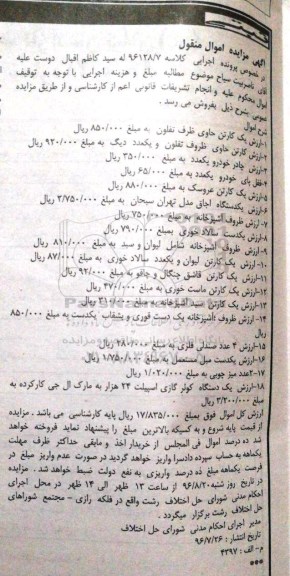 آگهی مزایده اموال منقول
در خصوص پرونده اجرایی کلاسه ۹۶۱۲۸/۷ له سید کاظم اقبال دوست علیه
آقای یاسر نیت سیاح موضوع مطالبه مبلغ و هزینه اجرایی با توجه به توقیف
اموال محکوم علیه و انجام تشریفات قانونی اعم از کارشناسی و از طریق مزایده
عمومی بشرح ذیل بفروش می رسد.
شرح اموال
۱-ارزش یک کارتن حاوی ظرف تفلون به مبلغ ۸۵۰/۰۰۰ ریال
۲-ارزش کارتن حاوی ظروف تفلون و یکعدد دیگ به مبلغ ۹۲۰/۰۰۰ ریال
۳-ارزش چادر خودرو یکعدد به مبلغ ۳۵۰/۰۰۰ ریال
۴-قفل پای خودرو یکعدد به مبلغ ۶۵/۰۰۰ ریال
۵-ارزش یک کارتن عروسک به مبلغ ۸۸۰/۰۰۰ ریال
۶-ارزش یکدستگاه اجاق مدل تهران سبحان به مبلغ ۲/۷۵۰/۰۰۰ ریال
۷-ارزش ظروف آشپزخانه به مبلغ ۷۵۰/۰۰۰ ریال
۸-ارزش یکدست سالاد خوری بمبلغ ۷۹۰/۰۰۰ ریال
۹-ارزش ظروف آشپزخانه شامل لیوان و سبد به مبلغ ۸۱۰/۰۰۰ ریال
۱۰-ارزش یک کارتن لیوان و یکعدد سالاد خوری به مبلغ ۸۷/۰۰۰ ریال
۱۱-ارزش یک کارتن قاشق چنگال و چاقو به مبلغ ۹۲/۰۰۰ ریال
۱۲-ارزش یک کارتن ماست خوری به مبلغ ۴۷۰/۰۰۰ ریال
۱۳-ارزش یک کارتن سبد آشپزخانه به مبلغ ۳۱۰/۰۰۰ ریال
۱۴-ارزش ظروف آشپزخانه یک دست قوری و بشقاب یکدست به مبلغ ۸۵۰/۰۰۰
ریال
۱۵-ارزش ۴ عدد صندلی فلزی به مبلغ ۲۸۰/۰۰۰ ریال
۱۶-ارزش یکدست مبل مستعمل به مبلغ ۱/۷۵۰/۰۰۰ ریال
۱۷-۲عدد میز چوبی به مبلغ ۱/۰۲۰/۰۰۰ ریال
۱۸-ارزش یک دستگاه کولر گازی اسپیلت ۲۴ هزار به مارک ال جی کارکرده به
مبلغ ۳/۲۰۰/۰۰۰ ریال
ارزش کل اموال فوق بمبلغ ۱۷/۸۳۵/۰۰۰ ریال پایه کارشناسی می باشد. مزایده
از قیمت پایه شروع و به کسیکه بالاترین مبلغ را پیشنهاد نماید فروخته خواهد
شد ده درصد اموال فی المجلس از خریدار اخذ و مابقی حداکثر ظرف مهلت
یکماهه به حساب سپرده دادسرا واریز خواهد گردید در صورت عدم واریز مبلغ در
فرصت یکماهه مبلغ ده درصد واریزی به نفع دولت ضبط خواهد شد. مزایده
در تاریخ روز شنبه ۹۶/۸/۲۰ از ساعت ۱۳ ظهر الی ۱۴ ظهر در محل اجرای
احکام مدنی شورای حل اختلاف رشت واقع در فلکه رازی - مجتمع شوراهای
حل اختلاف رشت برگزار میگردد.
مدیر اجرای احکام مدنی شورای حل اختلاف
تاریخ انتشار: ۹۶/۷/۲۶
م-الف: ۴۳۹۷